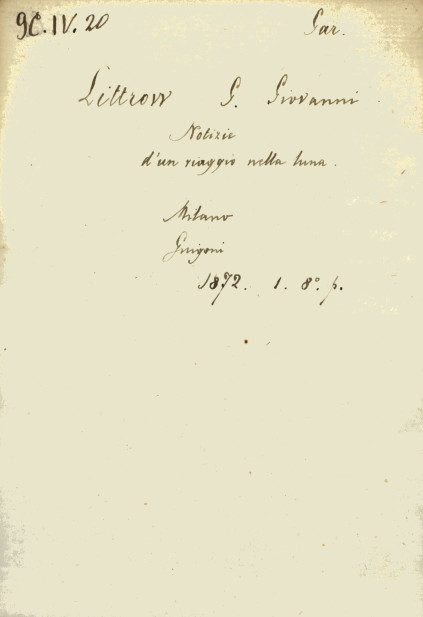 9C.IV.20 Gar.
Littrow G. Giovanni
Notizie
d'un viaggio nella luna.
Milano
Guigoni
1872. 1. 8º. p.